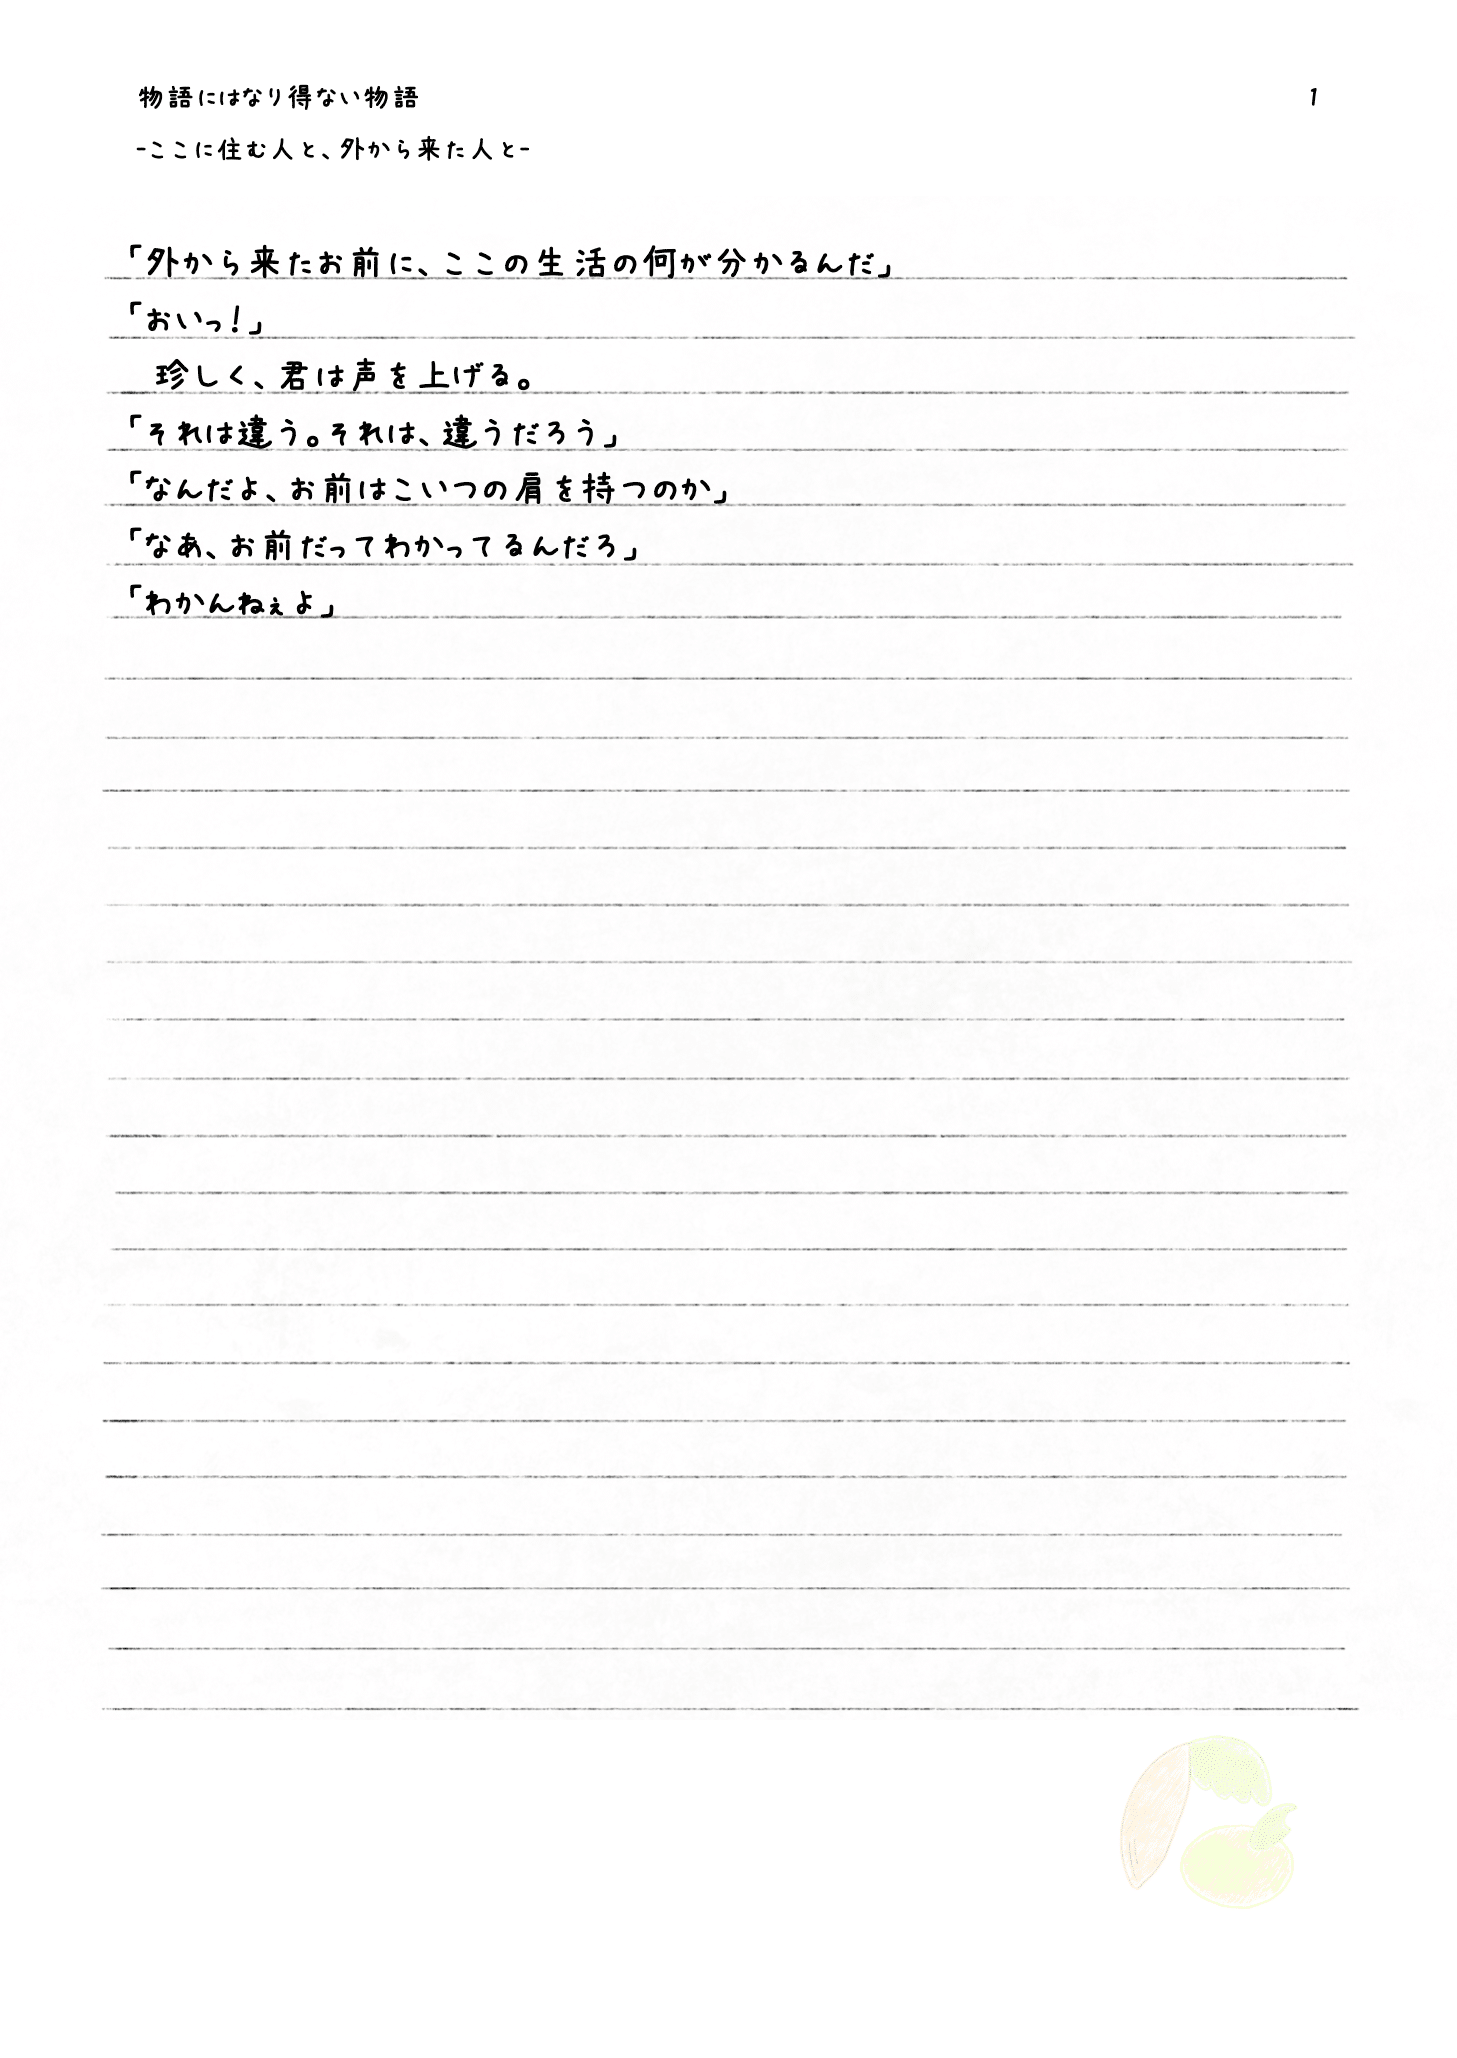 物語にはなり得ない物語
1
-ここに住む人と、外から来た人と-
「外から来たお前に、ここの生活の何が分かるんだ」
「おいっ!」
　珍しく、君は声を上げる。
「それは違う。それは、違うだろう」
「なんだよ、お前はこいつの肩を持つのか」
「なあ、お前だってわかってるんだろ」
「わかんねぇよ」